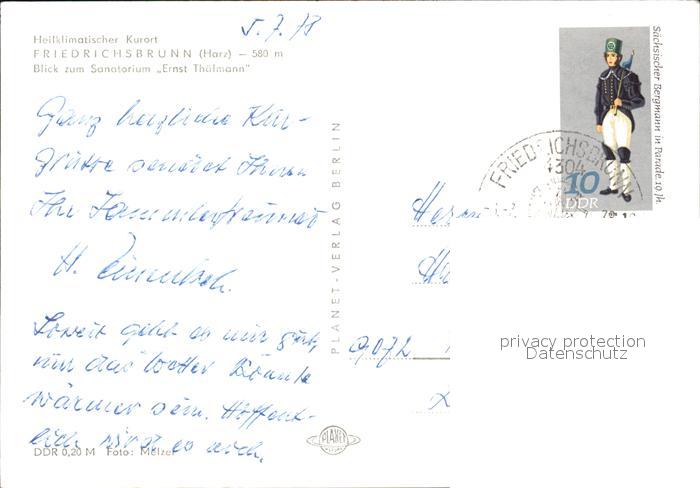 5.7.78
Heilklimatischer Kurort
FRIEDRICHSBRUNN (Harz) – 580 m
Blick zum Sanatorium „Ernst Thälmann"
Ganz herzliche Kur-
grüße sendet Ihnen
Ihr Sammlerfreund
H.
Soweit geht es mir gut,
nur das Wetter könnte
wärmer sein. Hoffent-
lich wird es noch.
DDR 0,20 M Foto: Melzer
PLANET-VERLAG BERLIN
PLANET
Sächsischer Bergmann in Parade 19. Jh.
10
DDR
FRIEDRICHSBRUNN
4304
Herrn
9072
privacy protection
Datenschutz